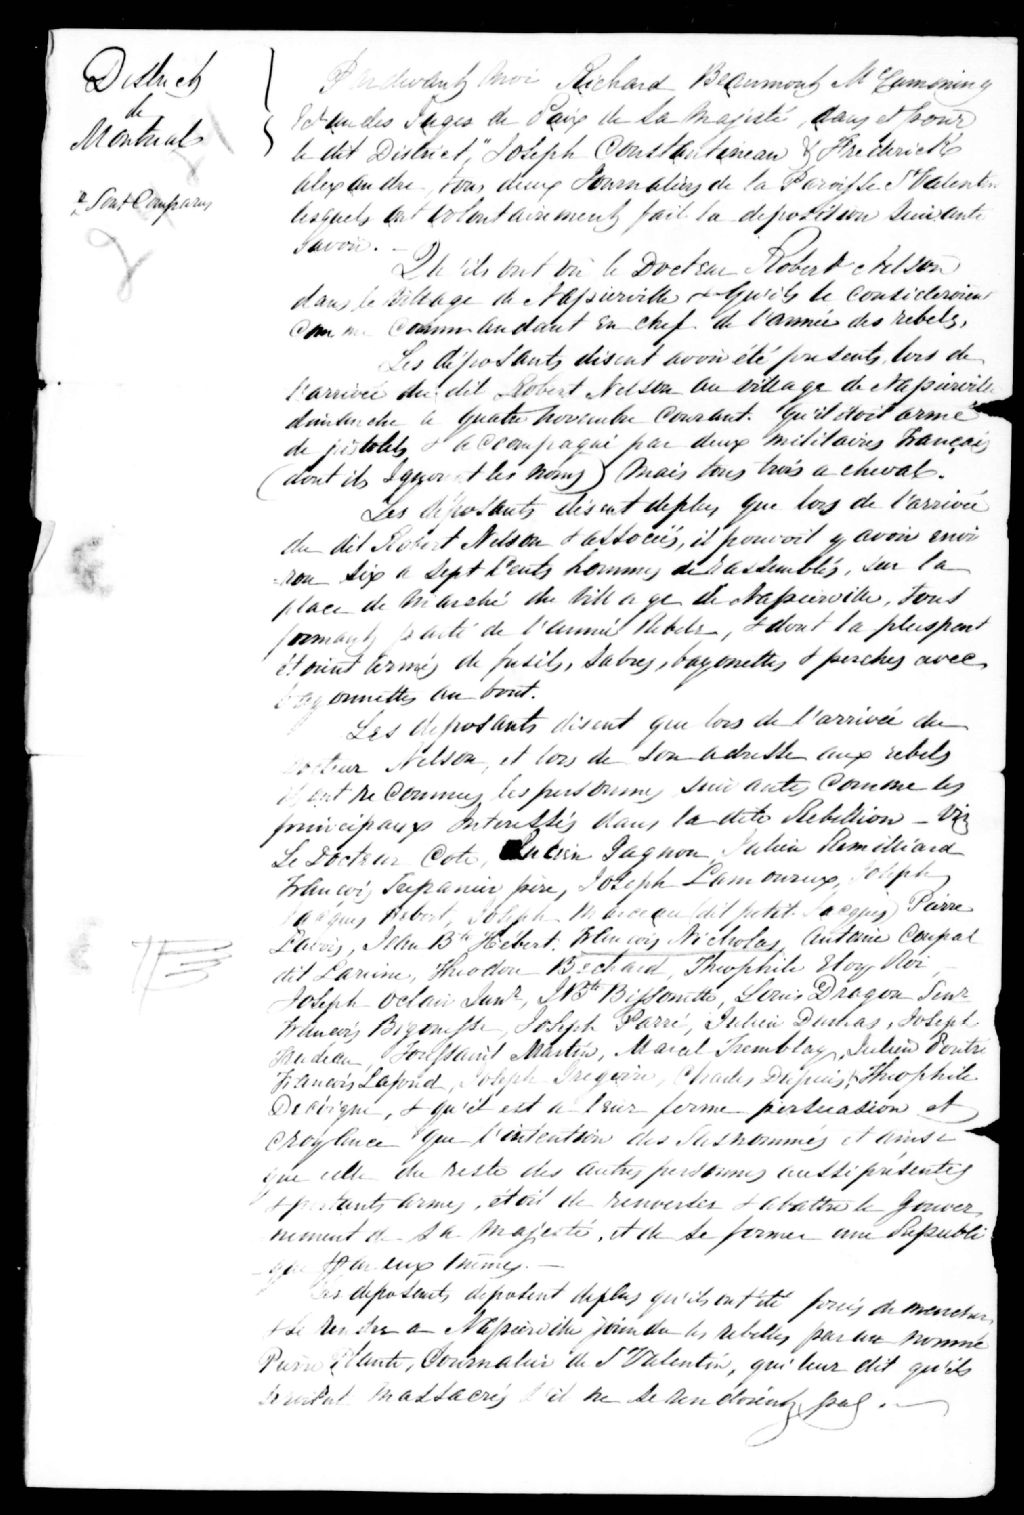 District
de
Montreal
" Sont Comparus
Pardevant Moi Richard Beaumont McCumming
Ecr un des Juges de Paix de Sa Majesté, dans et pour
le dit District, " Joseph Constantineau & Frederick
alexandre, tous deux Journaliers de la Paroisse St Valentin
lesquels ont volontairement fait la deposition suivante
Savoir. —
Qu'ils ont vu le Docteur Robert Nelson
dans le Village de Napierville & qu'ils le consideroient
Comme Commandant en chef de l'armée des rebels,
Les déposants disent avoir été presents, lors de
l'arrivée du dit Robert Nelson au village de Napierville
dimanche le quatre Novembre Courant. Qu'il étoit armé
de pistolets & accompagné par deux militaires Français
(dont ils Ignorent les noms) Mais tous trois a cheval.
Les déposants disent deplus que lors de l'arrivée
du dit Robert Nelson & associés, il pouvoit y avoir envi
ron six a Sept Cents hommes de rassemblés, sur la
place de Marché du Village de Napierville, tous
formant partie de l'armée Rebele, & dont la pluspart
étoient armés de fusils, Sabres, bayonettes & perches avec
bayonnettes au bout.
Les deposants disent que lors de l'arrivée du
Docteur Nelson, et lors de son adresse aux rebels
ils ont reconnus les personnes suivantes Comme les
principaux Interessés dans la dite Rebellion — Viz
Le Docteur Cote, Gagnon, Julien Remilliard
Francois Trepanier père, Joseph Lamoureux, Joseph
Jacques Robert, Joseph Marceau (dit petit Jacques) Pierre
Lavois, Jean Bte Hébert, Francois Nicholas, Antoine Coupal
dit Lareine, Theodore Bechard, Theophile Roi —
Joseph Oclair Junr, J Bte Bissonette, Louis Dragon Senr
Francois Bigonesse, Joseph Parré, Julien Dumas, Joseph
Toussaint Martin, Marcel Tremblay, Julien
Francois Lafond, Joseph Gregoire, Charles Dupuis, & Theophile
Decoigne, & qu'il est a leur ferme persuasion et
Croyance que l'intention des Susnommés et ainsi
que celle du reste des autres personnes aussi présentes
& portants armes, étoit de renverser & abattre le Gouver
nement de Sa Majesté, et de se former une Republi
que par eux mêmes. —
Les deposents deposent deplus qu'ils ont été forcés de marcher
& se rendre a Napierville joindre les rebelles par un nommé
Pierre Plante, Journalier de St Valentin, qui leur dit qu'ils
seroient Massacrés s'il ne se rendoient pas. —